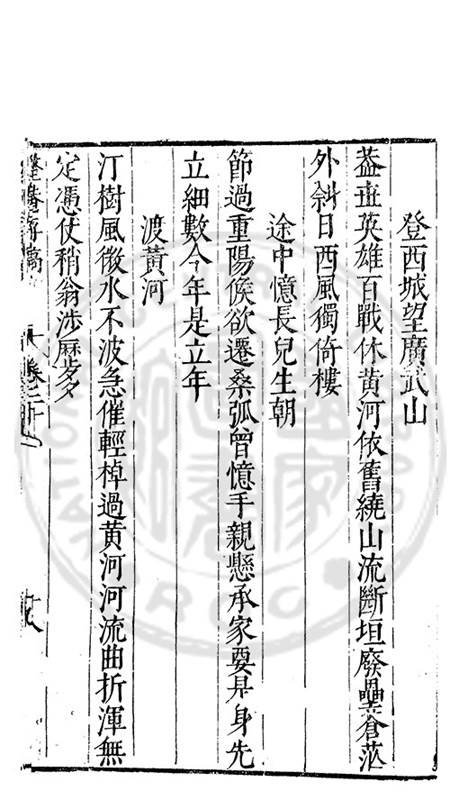 登西城望廣武山
葢丗英雄百戰休黄河依舊繞山流斷垣廢壘蒼茫
外斜日西風獨倚樓
途中憶長兒生朝
節過重陽候欲遷桑弧曾憶手親懸承家要是身先
立細數今年是立年
渡黃河
汀樹風微水不波急催輕棹過黄河河流曲折渾無
定憑仗稍翁涉歷多